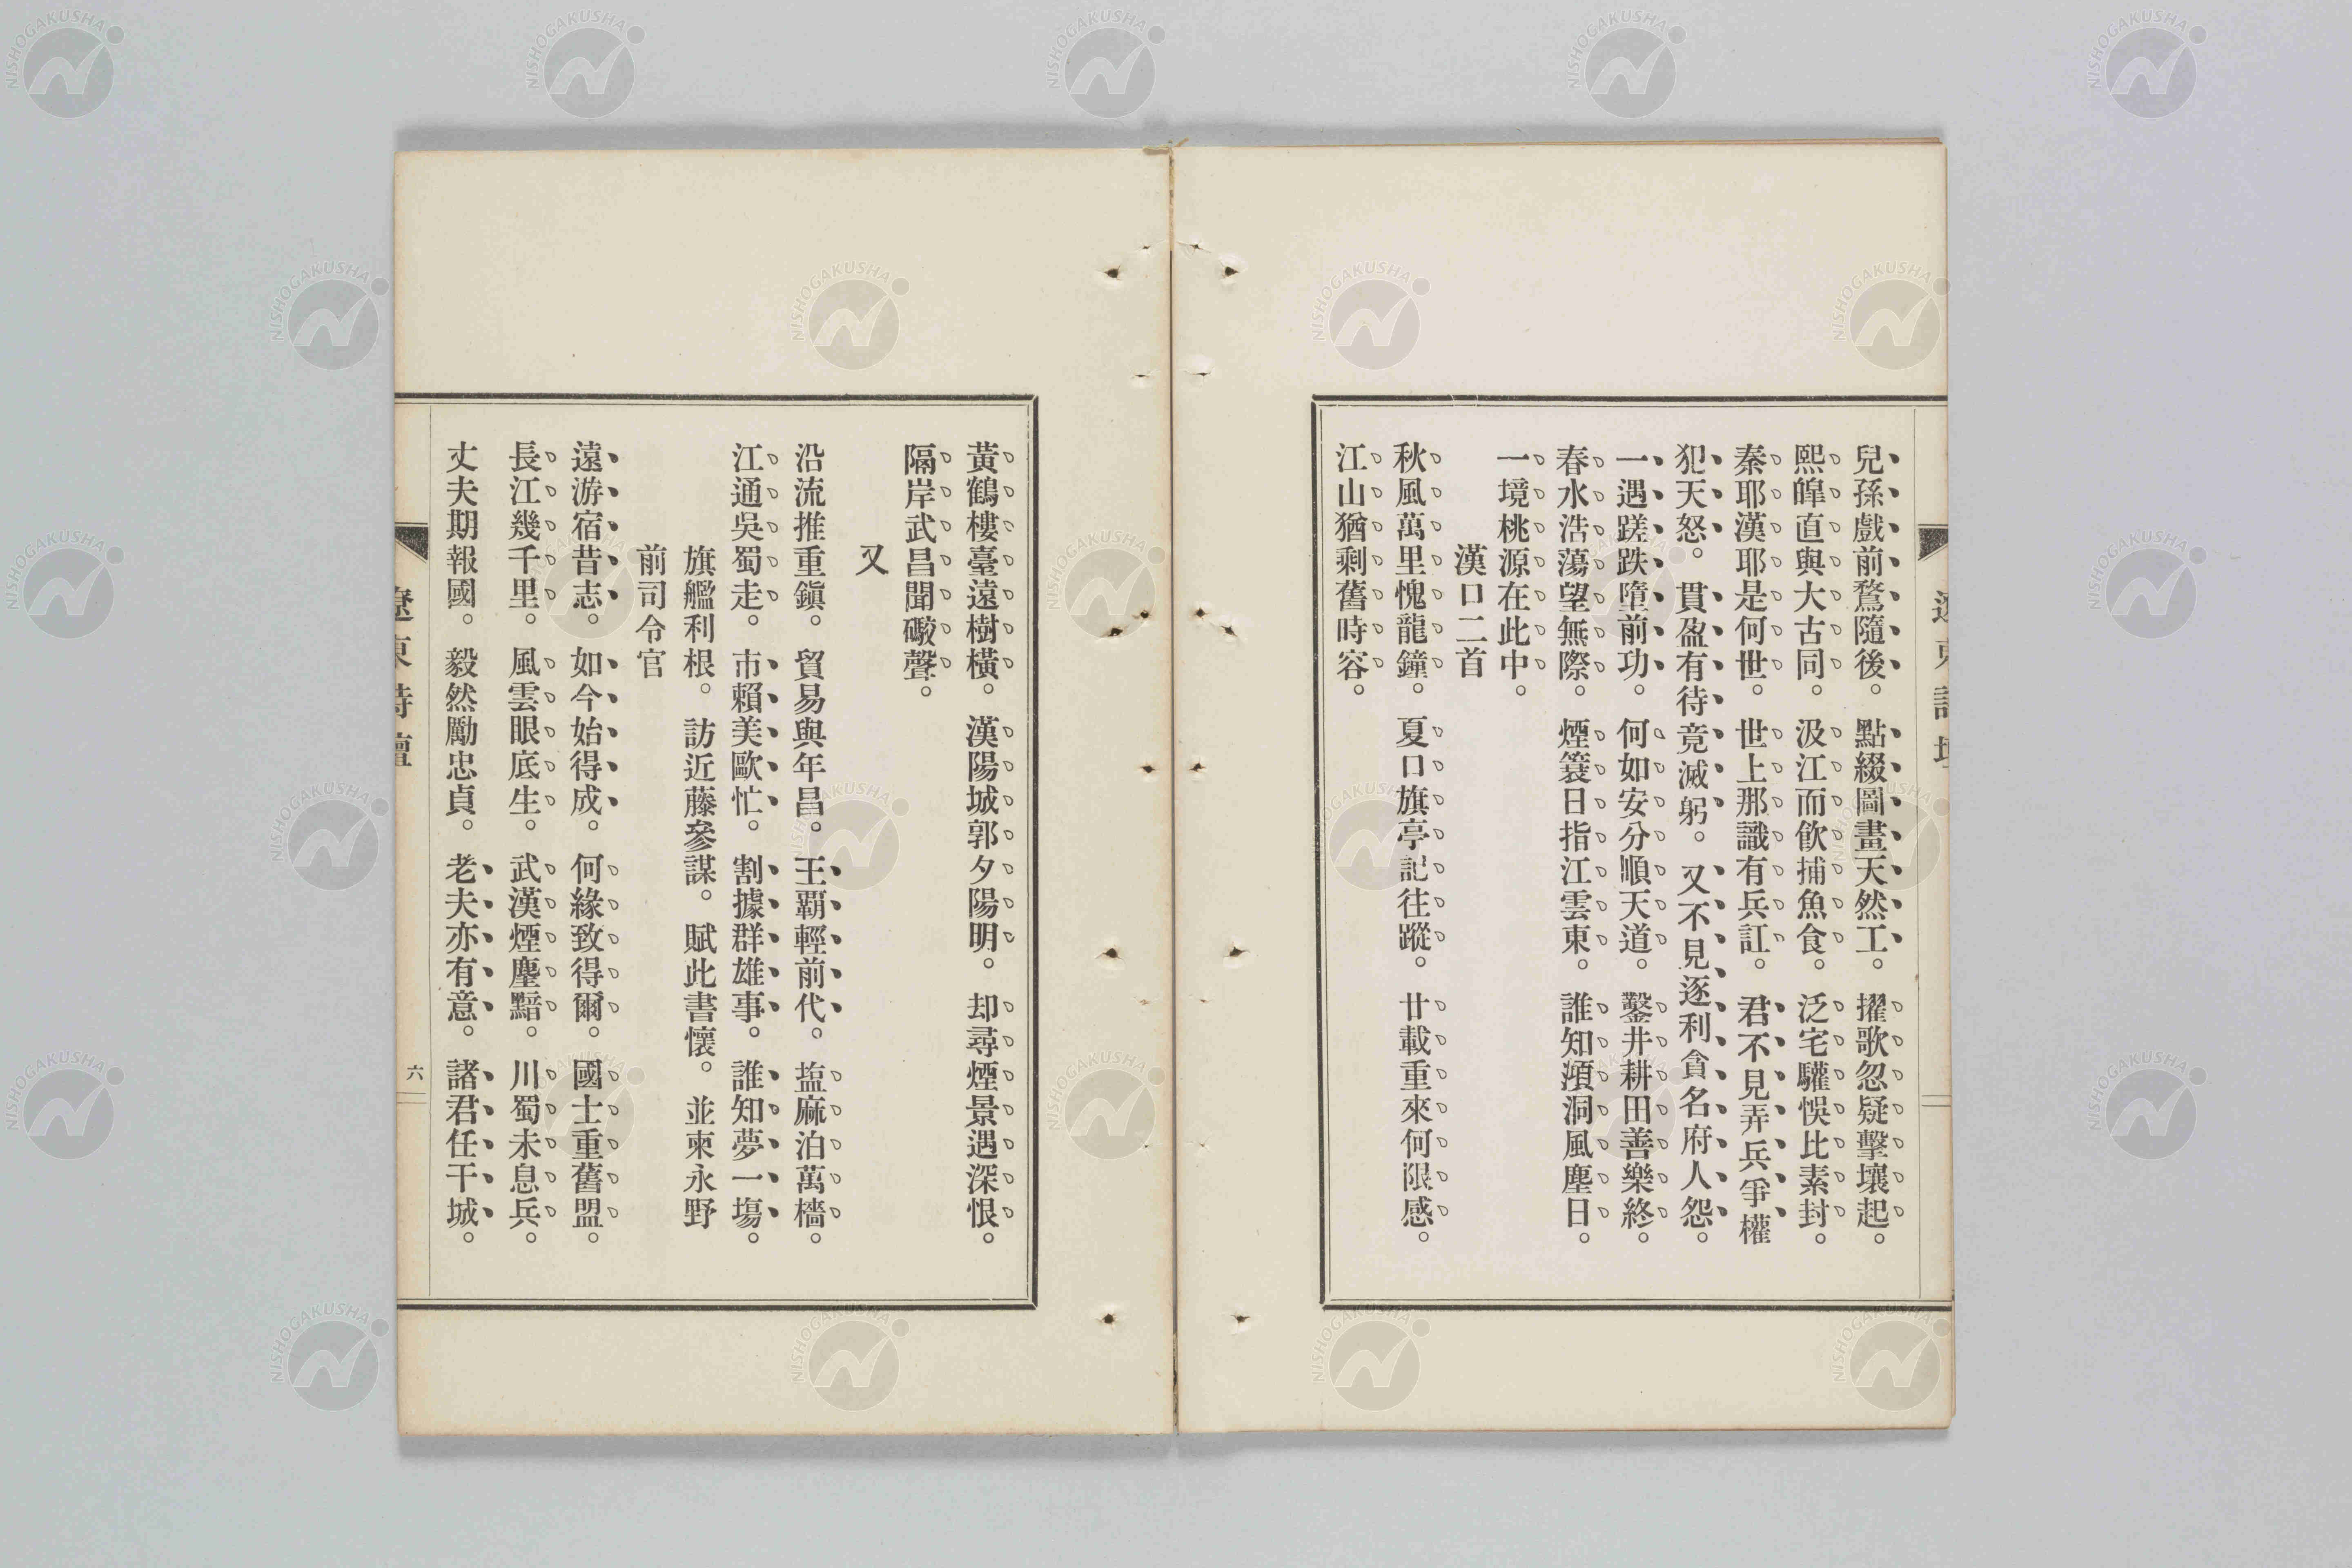 兒孫戲前鶩隨後。點綴圖畫天然工。擢歌忽疑擊壤起。
熙皥直與大古同。汲江而飮捕魚食。泛宅驩悞比素封。
秦耶漢耶是何世。世上那識有兵訌。君不見弄兵爭權
犯天怒。貫盈有待竟滅躬。又不見逐利貪名府人怨。
一遇蹉跌墮前功。何如安分順天道。鑿井耕田善樂終。
春水浩蕩望無際。煙簑日指江雲東。誰知澒洞風塵日。
一境桃源在此中。
漢口二首
秋風萬里愧龍鐘。夏口旗亭記往蹤。廿載重來何限感。
江山猶剩舊時容。
黃鶴樓臺遠樹橫。漢陽城郭夕陽明。却尋煙景遇深恨。
隔岸武昌聞礮聲。
又
沿流推重鎭。貿易與年昌。王覇輕前代。塩麻泊萬檣。
江通吳蜀走。市賴美歐忙。割據群雄事。誰知夢一塲。
旗艦利根。訪近藤參謀。賦此書懷。並柬永野
前司令官
遠游宿昔志。如今始得成。何緣致得爾。國士重舊盟。
長江幾千里。風雲眼底生。武漢煙塵黯。川蜀未息兵。
丈夫期報國。毅然勵忠貞。老夫亦有意。諸君任干城。
遼東詩壇
六
NISHOGAKUSHA